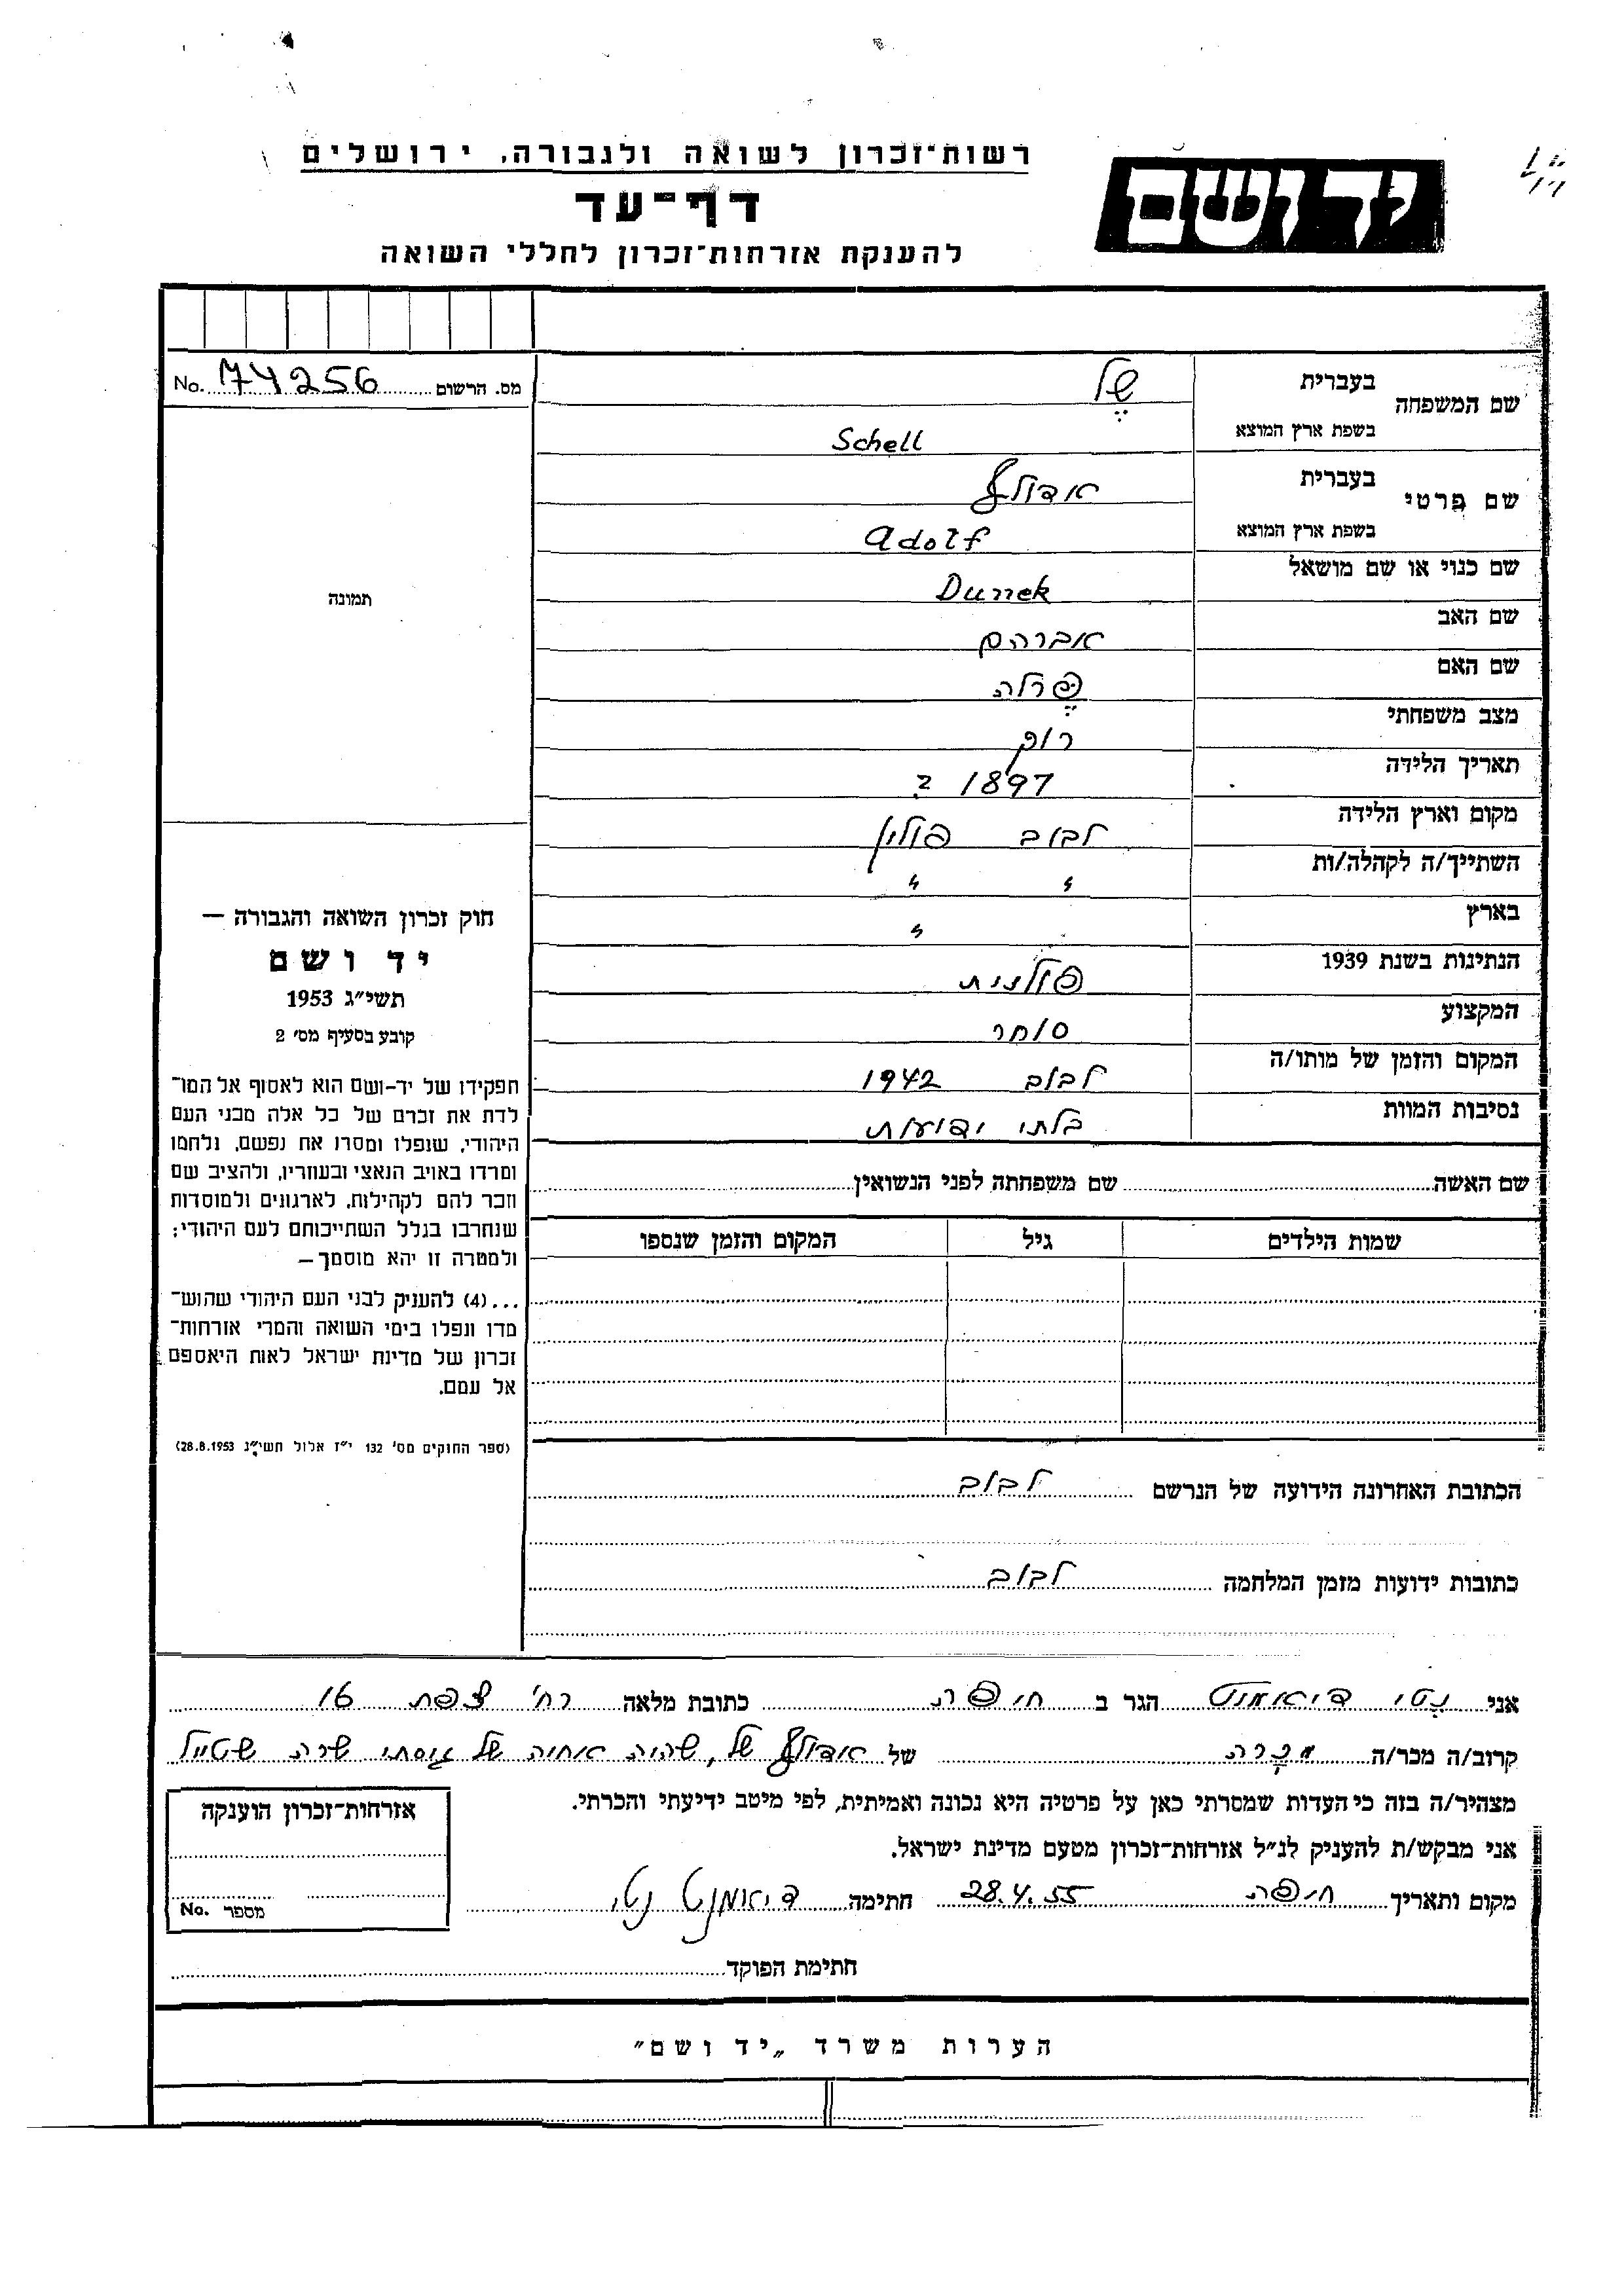 רשות־זכרון לשואה ולגבורה, ירושלים
יד ושם
דף־עד
להענקת אזרחות־זכרון לחללי השואה
מס. הרשום 74256 No.
שם המשפחה בעברית שֶל
בשפת ארץ המוצא Schell
שם פרטי בעברית אדולף
בשפת ארץ המוצא Adolf
שם כנוי או שם מושאל Dunek
שם האב אברהם
שם האם פֶּרלה
מצב משפחתי רוק
תאריך הלידה 1897 ?
מקום וארץ הלידה לבוב פולין
השתייך/ה לקהלה/ות " "
בארץ "
הנתינות בשנת 1939 פולנית
המקצוע סוחר
המקום והזמן של מותו/ה לבוב 1942
נסיבות המוות בלתי ידועות
תמונה
חוק זכרון השואה והגבורה —
יד ושם
תשי״ג 1953
קובע בסעיף מס׳ 2
תפקידו של יד־ושם הוא לאסוף אל המו־
לדת את זכרם של כל אלה מבני העם
היהודי, שנפלו ומסרו את נפשם, נלחמו
ומרדו באויב הנאצי ובעוזריו, ולהציב שם
וזכר להם לקהילות, לארגונים ולמוסדות
שנחרבו בגלל השתייכותם לעם היהודי;
ולמטרה זו יהא מוסמך —
...(4) להעניק לבני העם היהודי שהוש־
מדו ונפלו בימי השואה והמרי אזרחות־
זכרון של מדינת ישראל לאות היאספם
אל עמם.
(ספר החוקים מס׳ 132 י״ז אלול תשי״ג 28.8.1953)
שם האשה שם משפחתה לפני הנשואין
שמות הילדים גיל המקום והזמן שנספו
הכתובת האחרונה הידועה של הנרשם לבוב
כתובות ידועות מזמן המלחמה לבוב
אני נטי דיאמנט הגר ב חיפה כתובת מלאה רח׳ צפת 16
קרוב/ה מכר/ה מכרה של אדולף של, שהיה אחיה של גיסתי שרה שטייל
מצהיר/ה בזה כי העדות שמסרתי כאן על פרטיה היא נכונה ואמיתית, לפי מיטב ידיעתי והכרתי.
אני מבקש/ת להעניק לנ״ל אזרחות־זכרון מטעם מדינת ישראל.
מקום ותאריך חיפה 28.4.55 חתימה דיאמנט נטי
אזרחות־זכרון הוענקה
מספר No.
חתימת הפוקד
הערות משרד „יד ושם״